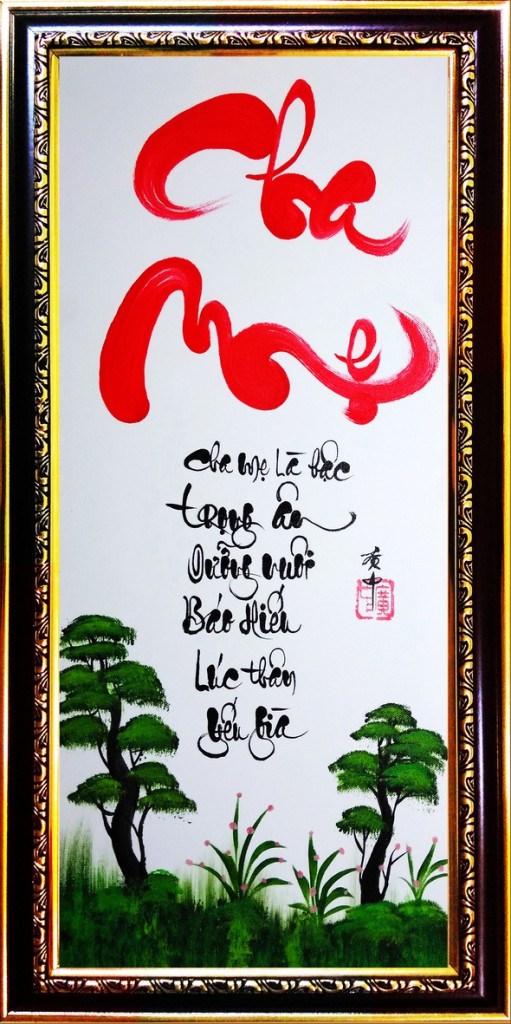 Cha
Mẹ
Cha mẹ là bậc
Trọng ân
Dưỡng nuôi
Báo Hiếu
Lúc thân
yếu già
黃中